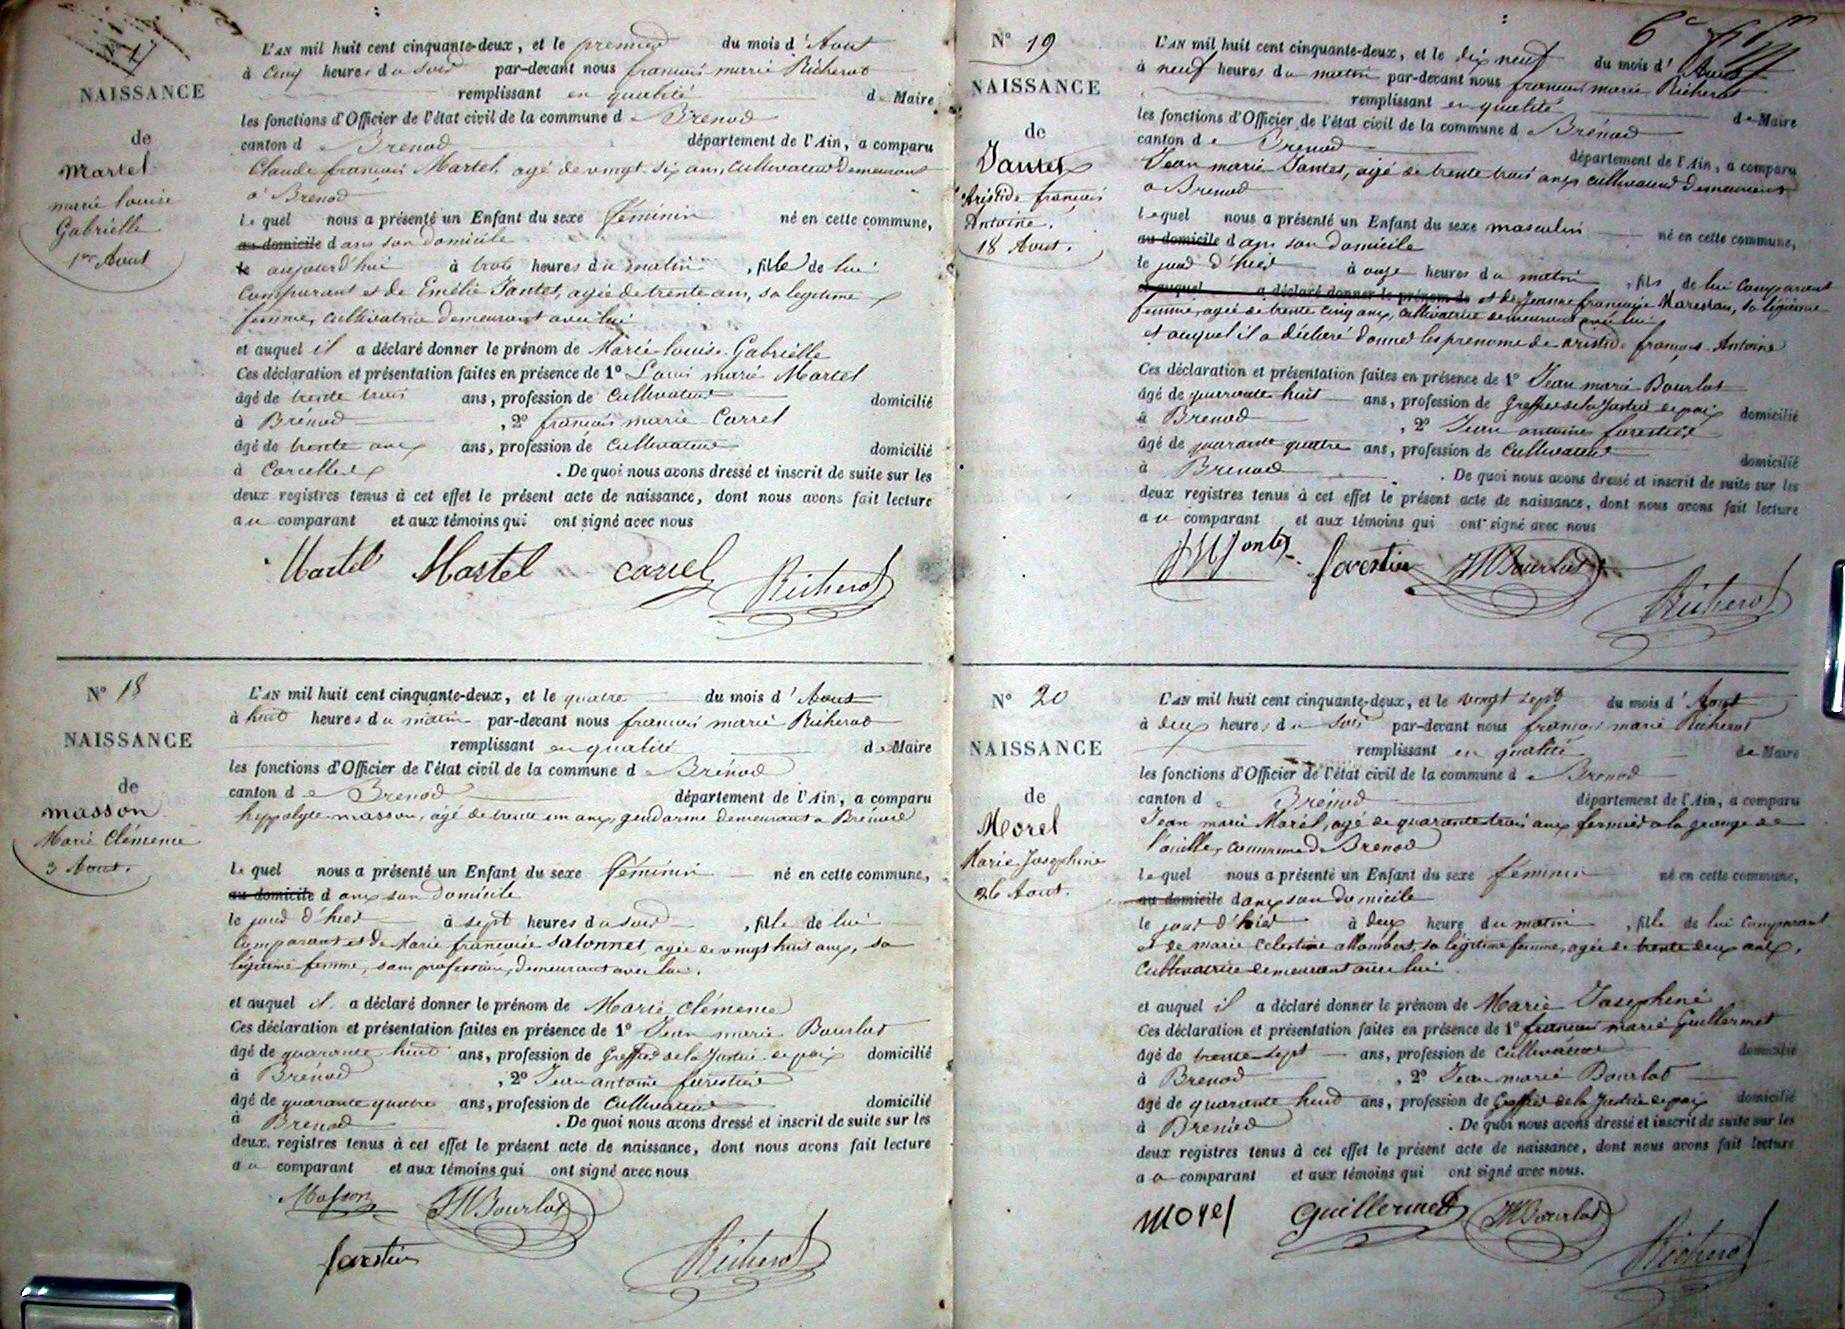 NAISSANCE
de
Martel
marie louise
Gabrielle
1er Aout
L'AN mil huit cent cinquante-deux, et le premier du mois d'Aout
à cinq heures du soir par-devant nous francois marie Richerot
remplissant en qualité de Maire
les fonctions d'Officier de l'état civil de la commune de Brenod
canton de Brenod département de l'Ain, a comparu
Claude francois Martel, agé de vingt-six ans, cultivateur demeurant
à Brenod
lequel nous a présenté un Enfant du sexe féminin né en cette commune,
au domicile dans son domicile
le aujourd'hui à trois heures du matin, fille de lui
comparant et de Emélie Jantet, agée de trente ans, sa légitime
femme, cultivatrice demeurant avec lui
et auquel il a déclaré donner le prénom de Marie-louise-Gabriélle
Ces déclaration et présentation faites en présence de 1° Louis marie Martel
âgé de trente trois ans, profession de Cultivateur domicilié
à Brénod, 2° francois marie Carrel
âgé de trente ans, profession de Cultivateur domicilié
à Corcelles. De quoi nous avons dressé et inscrit de suite sur les
deux registres tenus à cet effet le présent acte de naissance, dont nous avons fait lecture
au comparant et aux témoins qui ont signé avec nous
Martel Martel Carrel Richerot
N° 18
NAISSANCE
de
masson
Marie Clémence
3 Aout.
L'AN mil huit cent cinquante-deux, et le quatre du mois d'Aout
à huit heures du matin par-devant nous francois marie Richerot
remplissant en qualité de Maire
les fonctions d'Officier de l'état civil de la commune de Brénod
canton de Brenod département de l'Ain, a comparu
hyppolyte masson, agé de trente un ans, gendarme demeurant à Brénod
lequel nous a présenté un Enfant du sexe féminin né en cette commune,
au domicile dans son domicile
le jour d'hier à sept heures du soir, fille de lui
comparant et de Marie francoise salonnet, agée de vingt huit ans, sa
légitime femme, sans profession, demeurant avec lui.
et auquel il a déclaré donner le prénom de Marie Clémence
Ces déclaration et présentation faites en présence de 1° Jean marie Bourlot
âgé de quarante huit ans, profession de Greffier de la Justice de paix domicilié
à Brénod, 2° Jean antoine forestier
âgé de quarante quatre ans, profession de Cultivateur domicilié
à Brenod. De quoi nous avons dressé et inscrit de suite sur les
deux registres tenus à cet effet le présent acte de naissance, dont nous avons fait lecture
au comparant et aux témoins qui ont signé avec nous
Masson JMBourlot
forestier Richerot
N° 19
NAISSANCE
de
Jantet
Aristide francois
Antoine.
18 Aout.
L'AN mil huit cent cinquante-deux, et le dix neuf du mois d'Aout
à neuf heures du matin par-devant nous francois marie Richerot
remplissant en qualité de Maire
les fonctions d'Officier de l'état civil de la commune de Brénod
canton de Brenod département de l'Ain, a comparu
Jean marie Jantet, agé de trente trois ans cultivateur demeurant
à Brenod
lequel nous a présenté un Enfant du sexe masculin né en cette commune,
au domicile dans son domicile
le jour d'hier à onze heures du matin, fils de lui comparant
et auquel a déclaré donner le prénom de et de Jeanne françoise Marestan, sa légitime
femme, agée de trente cinq ans, cultivatrice demeurant avec lui
et auquel il a déclaré donner les prenoms de aristide françois Antoine
Ces déclaration et présentation faites en présence de 1° Jean marie Bourlot
âgé de quarante huit ans, profession de Greffier de la Justice de paix domicilié
à Brenod, 2° Jean antoine forestier
âgé de quarante quatre ans, profession de Cultivateur domicilié
à Brenod. De quoi nous avons dressé et inscrit de suite sur les
deux registres tenus à cet effet le présent acte de naissance, dont nous avons fait lecture
au comparant et aux témoins qui ont signé avec nous
JMJantet forestier JMBourlot
Richerot
N° 20
NAISSANCE
de
Morel
Marie Josephine
26 Aout.
L'AN mil huit cent cinquante-deux, et le vingt sept du mois d'Aout
à deux heures du soir par-devant nous francois marie Richerot
remplissant en qualité de Maire
les fonctions d'Officier de l'état civil de la commune de Brenod
canton de Brénod département de l'Ain, a comparu
Jean marie Morél, agé de quarante trois ans fermier à la grange de
commune de Brenod
lequel nous a présenté un Enfant du sexe féminin né en cette commune,
au domicile dans son domicile
le jour d'hier à deux heure du matin, fille de lui comparant
et de marie Celestine allombert, sa légitime femme, agée de trente deux ans,
cultivatrice demeurant avec lui
et auquel il a déclaré donner le prénom de Marie Josephine
Ces déclaration et présentation faites en présence de 1° francois marie Guillermet
âgé de trente-sept ans, profession de Cultivateur domicilié
à Brenod, 2° Jean marie Bourlot
âgé de quarante huit ans, profession de Greffier de la Justice de paix domicilié
à Brenod. De quoi nous avons dressé et inscrit de suite sur les
deux registres tenus à cet effet le présent acte de naissance, dont nous avons fait lecture
au comparant et aux témoins qui ont signé avec nous.
morel Guillermet JMBourlot
Richerot